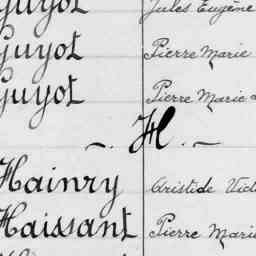 Guyot Jules Eugène
Guyot Pierre Marie
Guyot Pierre Marie
~. H. ~
Hainry Aristide
Haissant Pierre Marie